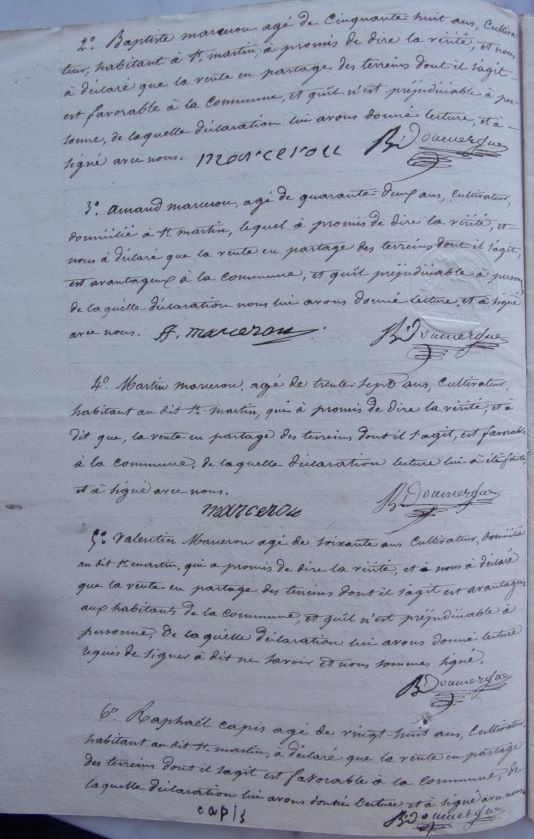 2.° Baptiste marcerou agé de Cinquante huit ans, Cultiva-
teur, habitant à St. martin, à promis de dire la vérité, et nous
à déclaré que la vente en partage des terreins dont il s'agit
est favorable à la Commune, et qu'il n'est préjudiciable à per-
sonne, de laquelle déclaration lui avons donné lecture, et à
signé avec nous. marcerou Bd Doumergue
3.° Amand marcerou, agé de quarante deux ans, Cultivateur,
domicilié à St. martin, lequel à promis de dire la vérité, et
nous à déclaré que la vente en partage des terreins dont il s'agit,
est avantageux à la Commune, et qu'il préjudiciable à personne
de laquelle déclaration nous lui avons donné lecture, et à signé
avec nous. A. marcerou Bd Doumergue
4.° Martin marcerou, agé de trente sept ans, Cultivateur,
habitant au dit St. martin, qui à promis de dire la vérité, et à
dit que, la vente en partage des terreins dont il s'agit, est favorable
à la Commune, de laquelle déclaration lecture lui à été faite
et à signé avec nous. Bd Doumergue
marcerou
5.° Valentin Marcerou agé de soixante ans Cultivateur, domicilié
au dit St. martin, qui a promis de dire la vérité, et à nous à déclaré
que la vente en partage des terreins dont il s'agit est avantageux
aux habitants de la Commune, et qu'il n'est préjudiciable à
personne, de laquelle déclaration lui avons donné lecture
requis de signer à dit ne savoir et nous sommes signé.
Bd Doumergue
6.° Raphaël Capis agé de vingt huit ans, Cultivateur
habitant au dit St. martin, à déclaré que la vente en partage
des terreins dont il s'agit est favorable à la Commune, de
laquelle déclaration lui avons donné lecture et à signé avec nous
capis Bd Doumergue